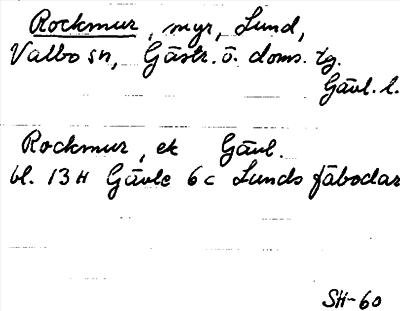 Rockmur, myr, Lund,
Valbo sn, Gästr. ö. doms. tg.
Gävl. l.
Rockmur, ek Gävl.
bl. 13H Gävle 6c Lunds fäbodar
SH-60